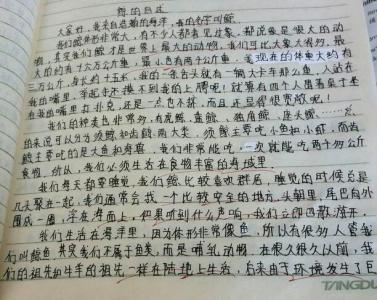 鲸的自述
大家好，我来自浩瀚的海洋，我的名字叫鲸。
我们鲸体形非常大，有不少人都看见过象，都说象是很大的动
物，其实我们鲸才是世界上最大的动物，我们可比大象大得多，最
大的约有十六万公斤重，最小也有两千公斤重，我现在的体重大约有
三万公斤，身长约十五米，我的一条舌头就有一辆大卡车那么重，人站在
我的嘴里，举起手不摸不到我的上腭呢！就算有四个人围着桌子坐
在我的嘴里打扑克，还是一点也不挤，而且还显得很宽敞呢！
我们的种类也非常多，有虎鲸、蓝鲸、独角鲸、座头鲸……总
的来说可以分为须鲸和齿鲸两大类。须鲸主要吃小鱼和小虾，而齿
鲸主要吃的是大鱼和海兽，我们非常能吃，一次就能吃两千多公斤
食物，所以，我们必须生活在食物丰富的海域里。
我们每天都要睡觉，我们鲸比较喜欢群居，睡觉的时候总是
几头聚在一起，我们通常会找一个比较安全的地方，头朝里，尾巴向外
围成一圈，浮在海面上，如果听到什么声响，我们立即四散游开，
我们生活在海洋里，因为体形非常像鱼，所以有很多人管我
们叫鲸鱼，其实我们不属于鱼类，而是哺乳动物，在很久很久以前，我
们的祖先和牛羊的祖先一样在陆地上生活，后来由于环境发生了巨
TANGDU